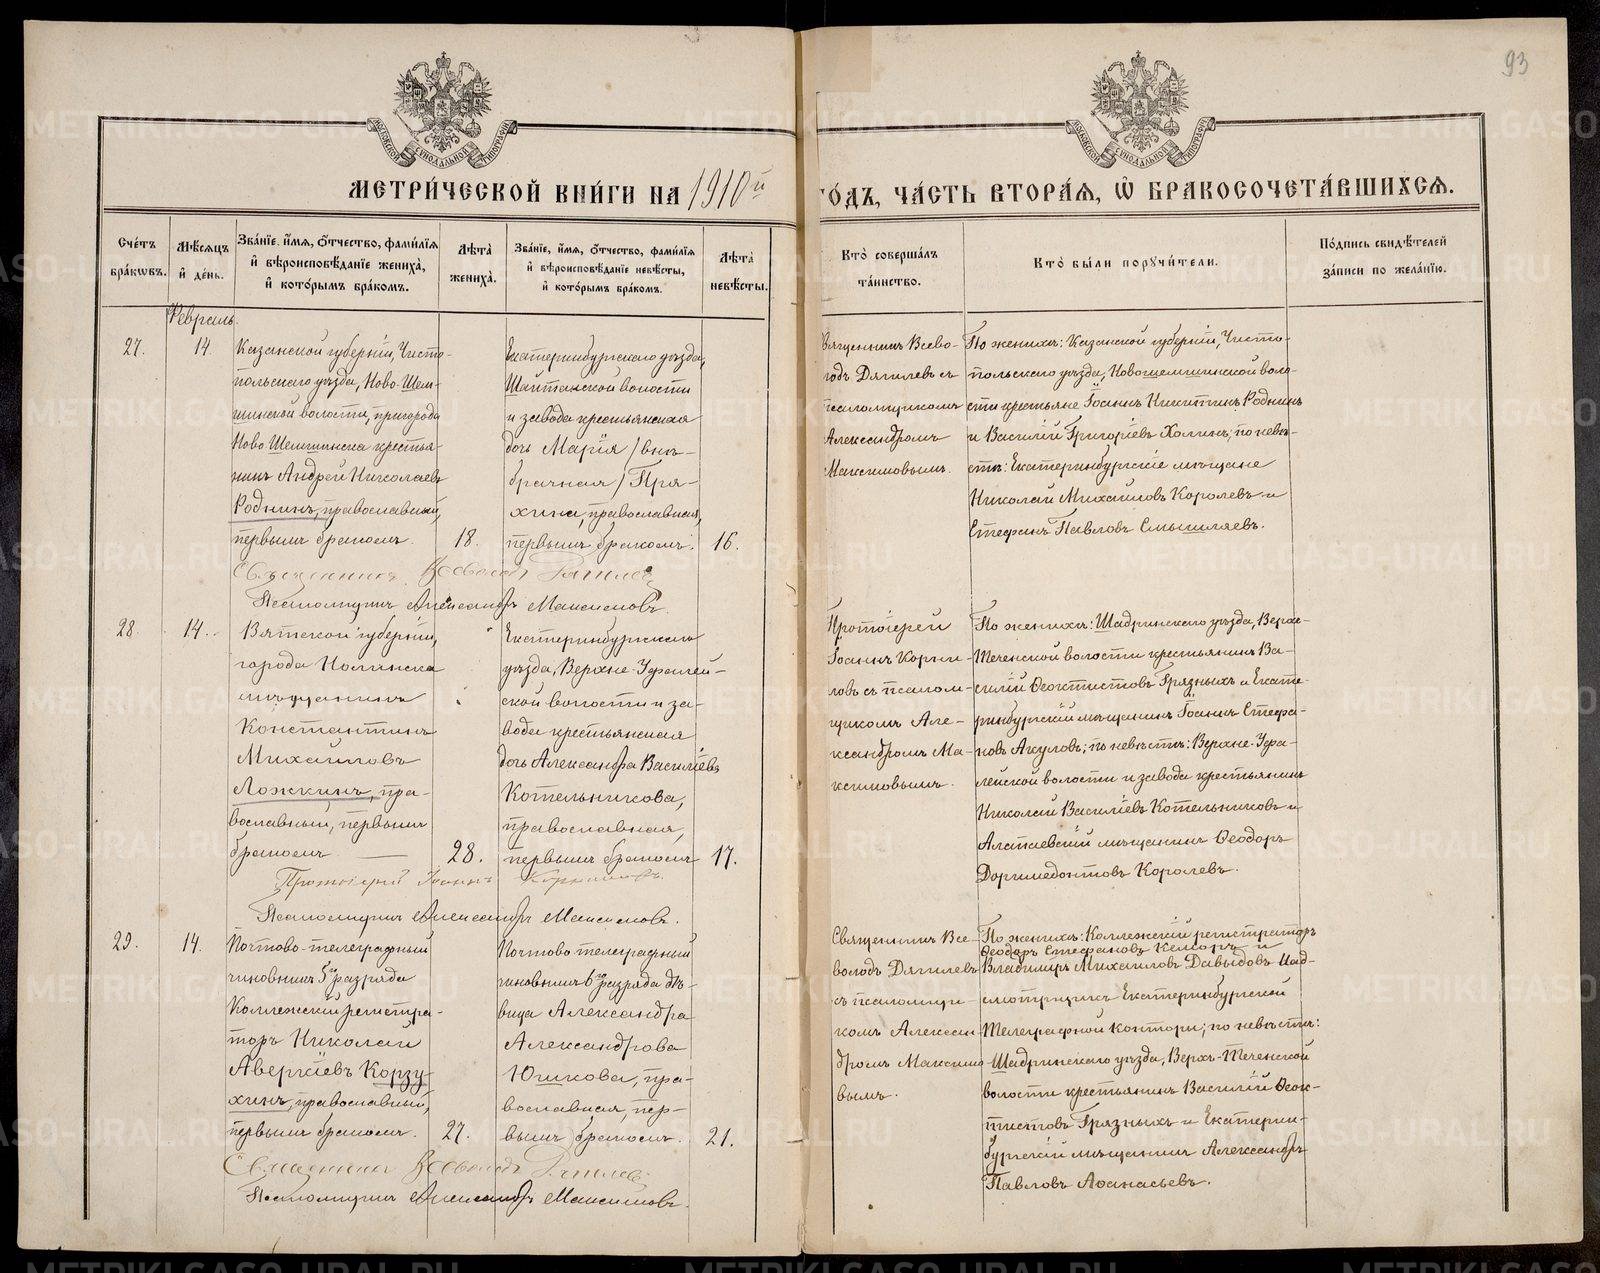 93
МОСКОВСКОЙ СУНОДАЛЬНОЙ ТИПОГРАФІИ
МОСКОВСКОЙ СУНОДАЛЬНОЙ ТИПОГРАФІИ
МЕТРИ́ЧЕСКОЙ КНИ́ГИ НА 1910й ГО́ДЪ, ЧА́СТЬ ВТОРА́Я, Ѡ҆ БРАКОСОЧЕТА́ВШИХСЯ.
Сче́тъ бра́ковъ.
Мѣ́сяцъ и҆ де́нь.
Зва́нїе, и҆́мя, ѻ҆́тчество, фами́лїя и҆ вѣроисповѣ́данїе жениха̀, и҆ кото́рымъ бра́комъ.
Лѣ́та жениха̀.
Зва́нїе, и҆́мя, ѻ҆́тчество, фами́лїя и҆ вѣроисповѣ́данїе невѣ́сты, и҆ кото́рымъ бра́комъ.
Лѣ́та невѣ́сты.
Кто̀ соверша́лъ та́инство.
Кто̀ бы́ли порꙋчи́тели.
По́дпись свидѣ́телей за́писи по жела́нїю.
Февраль.
27.
14.
Казанской губерніи, Чисто-
польскаго уѣзда, Ново-Шеш-
минской волости, пригорода
Ново Шешминска крестья-
нинъ Андрей Николаевъ
Роднинъ, православный,
первымъ бракомъ.
18.
Екатеринбургскаго уѣзда,
Шайтанской волости
и завода крестьянская
дочь Марія /внѣ-
брачная/ Пря-
хина, православная,
первымъ бракомъ.
16.
Священникъ Всево-
лодъ Дягилевъ съ
псаломщикомъ
Александромъ
Максимовымъ.
По женихѣ: Казанской губерніи, Чисто-
польскаго уѣзда, Новошешминской воло-
сти крестьяне Іоаннъ Никитинъ Роднинъ
и Василій Григоріевъ Холинъ; по невѣ-
стѣ: Екатеринбургскіе мѣщане
Николай Михайловъ Королевъ и
Стефанъ Павловъ Смышляевъ.
Священникъ Всеволодъ Дягилевъ
Псаломщикъ Александръ Максимовъ.
28.
14.
Вятской губерніи,
города Нолинска
мѣщанинъ
Константинъ
Михайловъ
Ложкинъ, пра-
вославный, первымъ
бракомъ
28.
Екатеринбургскаго
уѣзда, Верхне-Уфалей-
ской волости и за-
вода крестьянская
дочь Александра Василіева
Котельникова,
православная,
первымъ бракомъ
17.
Протоіерей
Іоаннъ Корни-
ловъ съ псалом-
щикомъ Але-
ксандромъ Ма-
ксимовымъ.
По женихѣ: Шадринскаго уѣзда, Верхе-
Теченской волости крестьянинъ Ва-
силій Ѳеоктистовъ Грязныхъ и Екате-
ринбургскій мѣщанинъ Іоаннъ Стефа-
новъ Акуловъ; по невѣстѣ: Верхне-Уфа-
лейской волости и завода крестьянинъ
Николай Василіевъ Котельниковъ и
Алапаевскій мѣщанинъ Ѳеодоръ
Доримедонтовъ Королевъ.
Протоіерей Іоаннъ Корниловъ.
Псаломщикъ Александръ Максимовъ.
29.
14.
Почтово-телеграфный
чиновникъ 5го разряда
Коллежскій регистра-
торъ Николай
Аверкіевъ Корзу-
хинъ, православный,
первымъ бракомъ.
27.
Почтово телеграфный
чиновникъ 6го разряда дѣ-
вица Александра
Александрова
Юшкова, пра-
вославная, пер-
вымъ бракомъ.
21.
Священникъ Все-
володъ Дягилевъ
съ псаломщи-
комъ Алексан-
дромъ Максимо-
вымъ.
По женихѣ: Коллежскій регистраторъ
Ѳеодоръ Стефановъ и
Владиміръ Михаиловъ Давыдовъ Над-
смотрщикъ Екатеринбургской
Телеграфной Конторы; по невѣстѣ:
Шадринскаго уѣзда, Верхъ-Теченской
волости крестьянинъ Василій Ѳеок-
тистовъ Грязныхъ и Екатерин-
бургскій мѣщанинъ Александръ
Павловъ Аѳанасьевъ.
Священникъ Всеволодъ Дягилевъ
Псаломщикъ Александръ Максимовъ.
METRIKI.GASO-URAL.RU